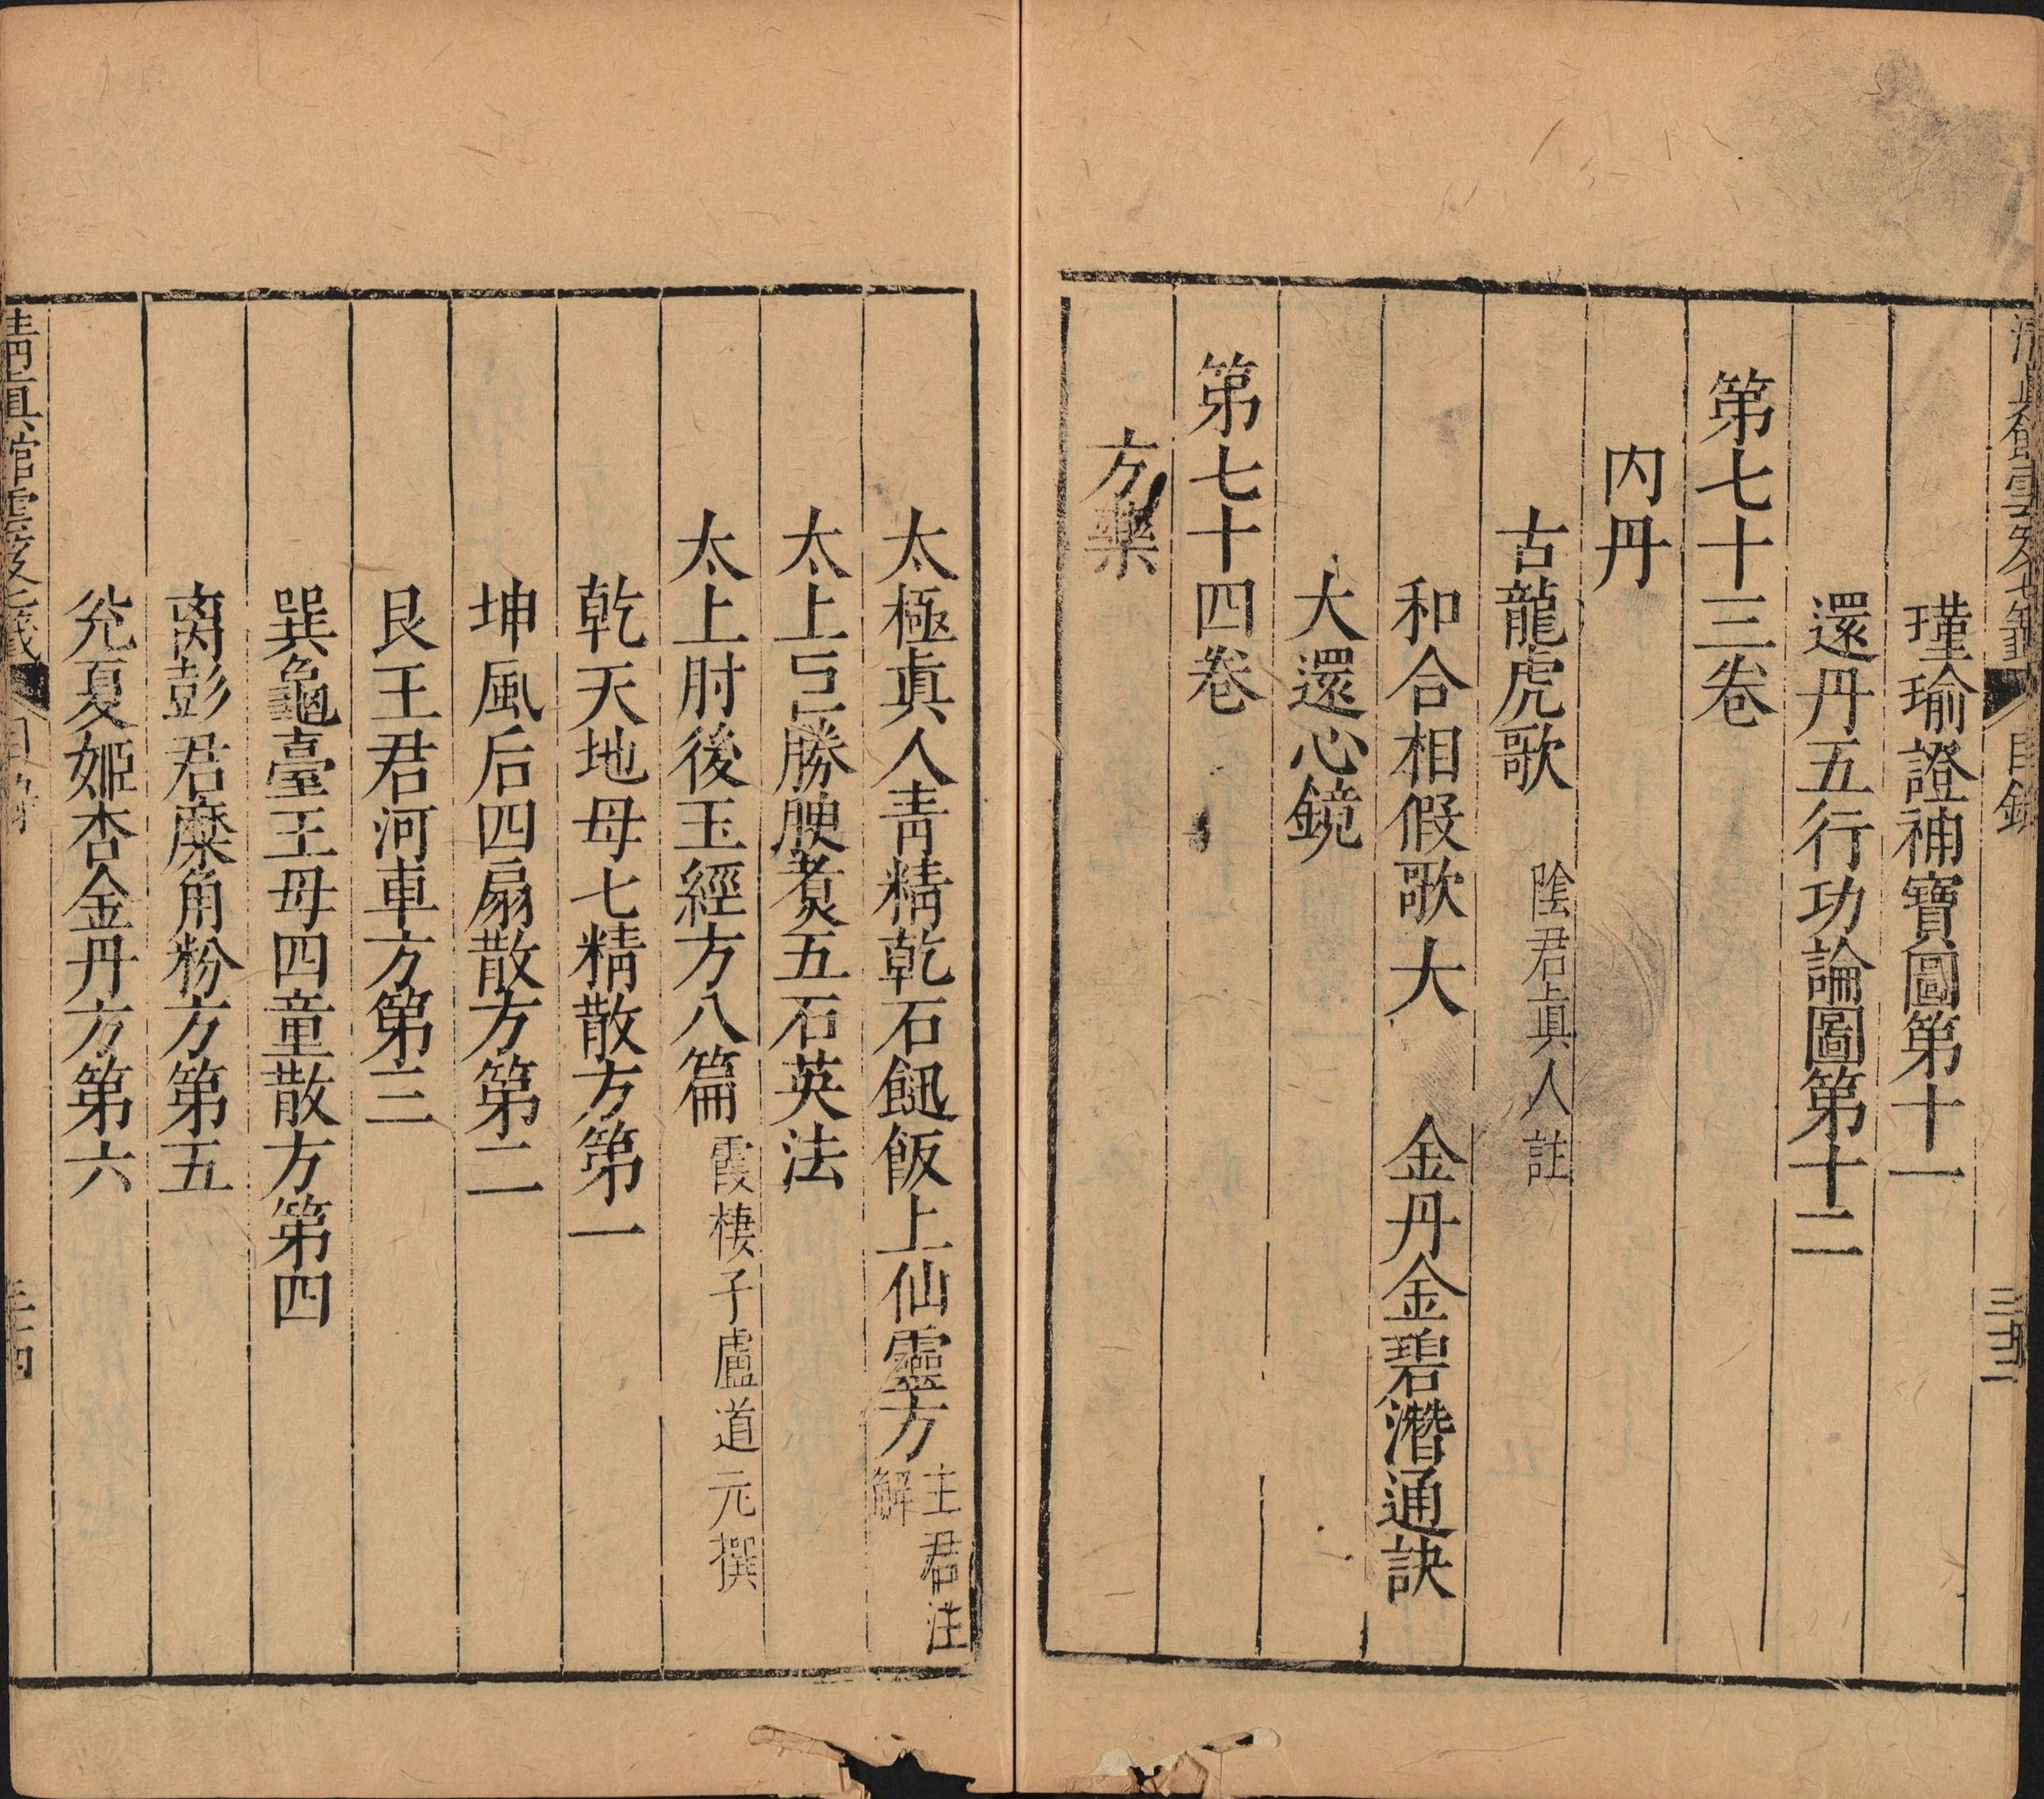 瑾瑜證補寶圖第十一
還丹五行功論圖第十二
第七十三卷
内丹
古龍虎歌 陰君眞人註
和合相假歌大 金丹金碧潛通訣
大還心鏡
第七十四卷
方藥
太極眞人青精乾石䭀飯上仙靈方 主君注解
太上巨勝腴煑五石英法
太上肘後玉經方八篇 霞棲子盧道元撰
乾天地母七精散方第一
坤風后四扇散方第二
艮王君河車方第三
巽龜臺王母四童散方第四
离彭君麋角粉方第五
兊夏姬杏金丹方第六